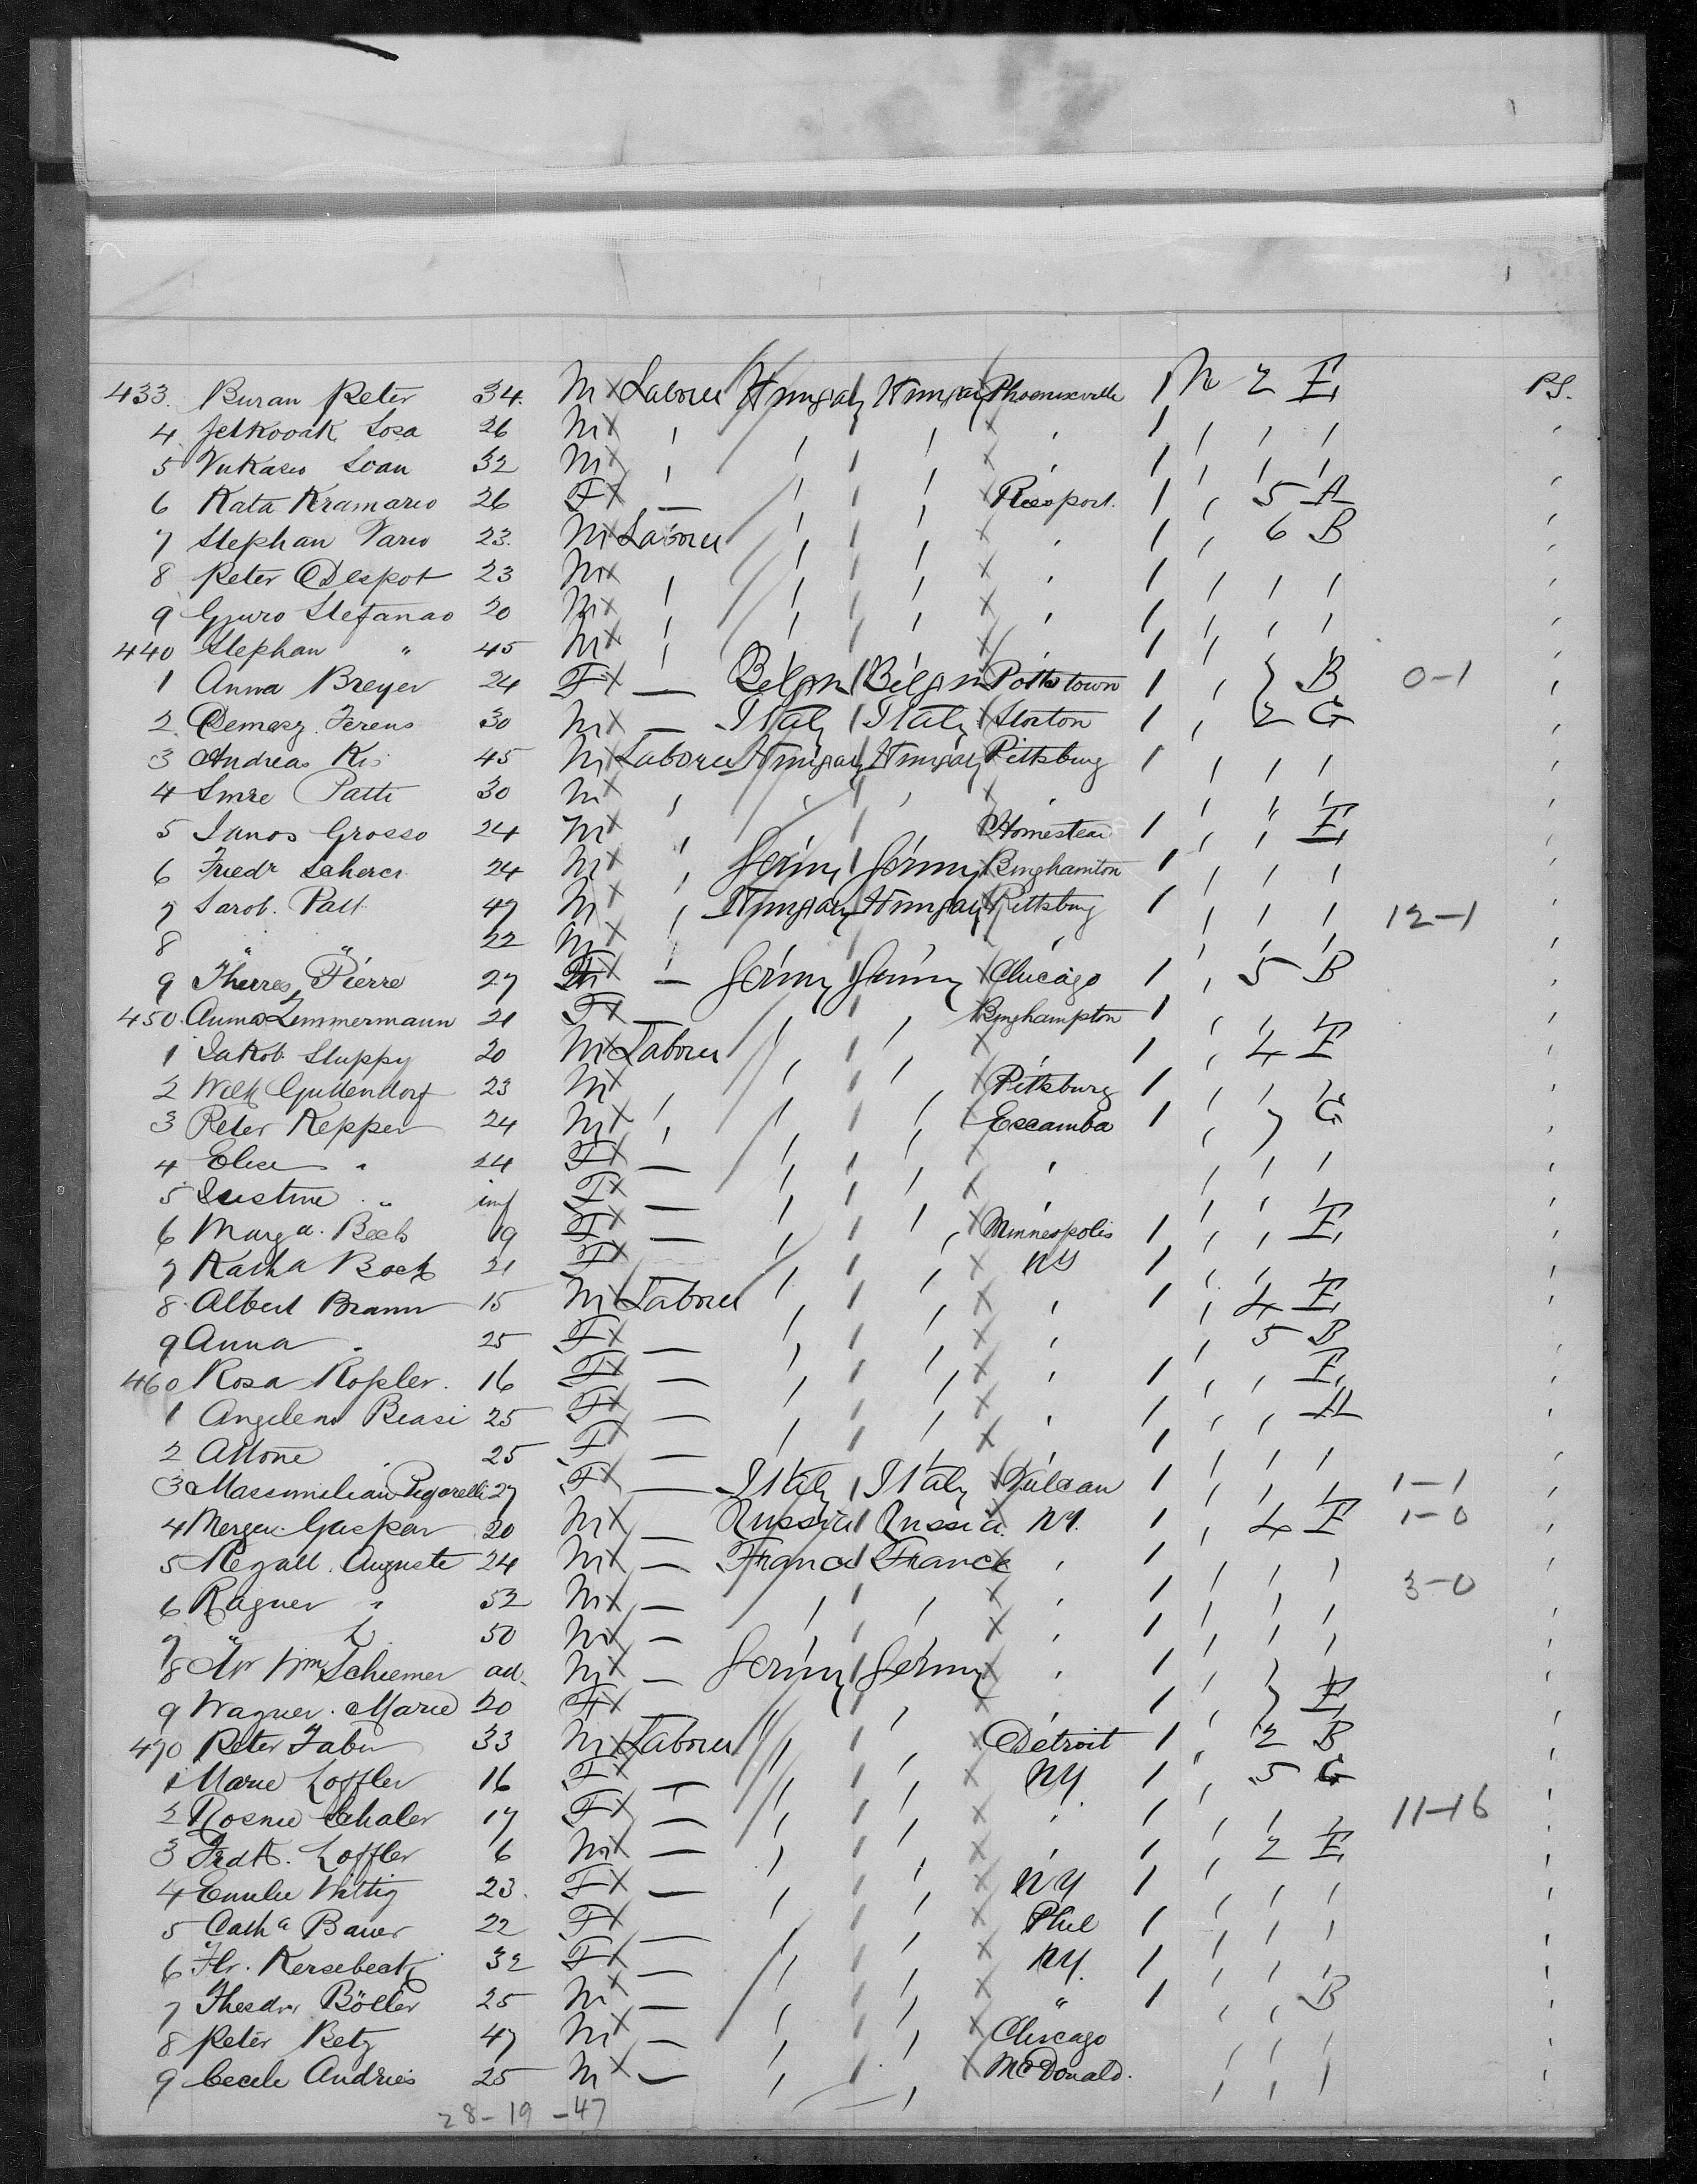 433. Buran Peter 34. M x Laborer Hungary Hungary Phoenixville 1 N 2 E PS.
4 Jelkovak Sosa 26 M x
5 Vukasio Ivan 32 M x
6 Kata Kramario 26 F x — Reesport. 1 5 A
7 Stephan Vario 23. M x Laborer 1 6 B
8 Peter Despot 23 M x
9 Gjuro Stefanao 20 M x
440 Stephan " 45 M x
1 Anna Breyer 24 F x — Belgm Belgm Pottstown 1 7 B 0-1
2. Demesz Ferens 30 M x — Italy Italy Stockton 1 2 G
3 Andreas Kis 45 M Laborer Hungary Hungary Pittsburg 1
4 Imre Patti 30 M x
5 Janos Grosso 24 M x Homestead 1 E
6 Friedr Scherer 24 M x Germy Germy Binghamton 1
7 Jarob. Patt 47 M x Hungary Hungary Pittsburg 1 12-1
8 " " 22 M x
9 Therres Pierre 27 x — Germy Germy Chicago 1 5 B
450. Anna Zimmermann 21 F x — Binghampton 1
1 Jakob Stuppy 20 M x Laborer 1 4 E
2 Wilh Guttendorf 23 M x Pittsburg 1
3 Peter Kepper 24 M x Escamba 1 7 G
4 Elise " 24 F x —
5 Justine " inf F x —
6 Marga. Bech 19 F x — Minneapolis 1 E
7 Katha Bock 21 F x NY 1
8. Albert Braun 15 M Laborer 1 4 E
9 Anna " 25 F x — 5 B
460 Rosa Kopler. 16 F x — 1 E
1 Angelena Biasi 25 F x — 1 A
2 Attone " 25 F x — 1
3 Massimilian Pegorelli 27 F x — Italy Italy Vulcan 1 1-1
4 Mergen Gaspar 20 M x — Russia Russia NY. 1 4 E 1-0
5 Regall. Auguste 24 M x — France France 1
6 Ragner " 52 M x — 1 3-0
7 " L 50 M x — 1
8 Mr Wm Schiemer ad. M x — Germy Germy 1
9 Wagner. Marie 20 F x 1 7 E
470 Peter Faber 33 M x Laborer Detroit 1 2 B
1 Marie Loffler 16 F x — NY 1 5 G
2 Rosine Schaler 17 F x — 1 11-16
3 Fredk. Loffler 6 M x — 1 2 E
4 Emilie Wittig 23. F x — NY 1
5 Catha Bauer 22 F x — Phil 1
6 Fr. Kersebeck 32 F x — NY. 1
7 Theodor Böller 25 M x — " 1 B
8 Peter Betz 47 M x — Chicago
9 Cecile Andries 25 M x — McDonald.
28-19-47